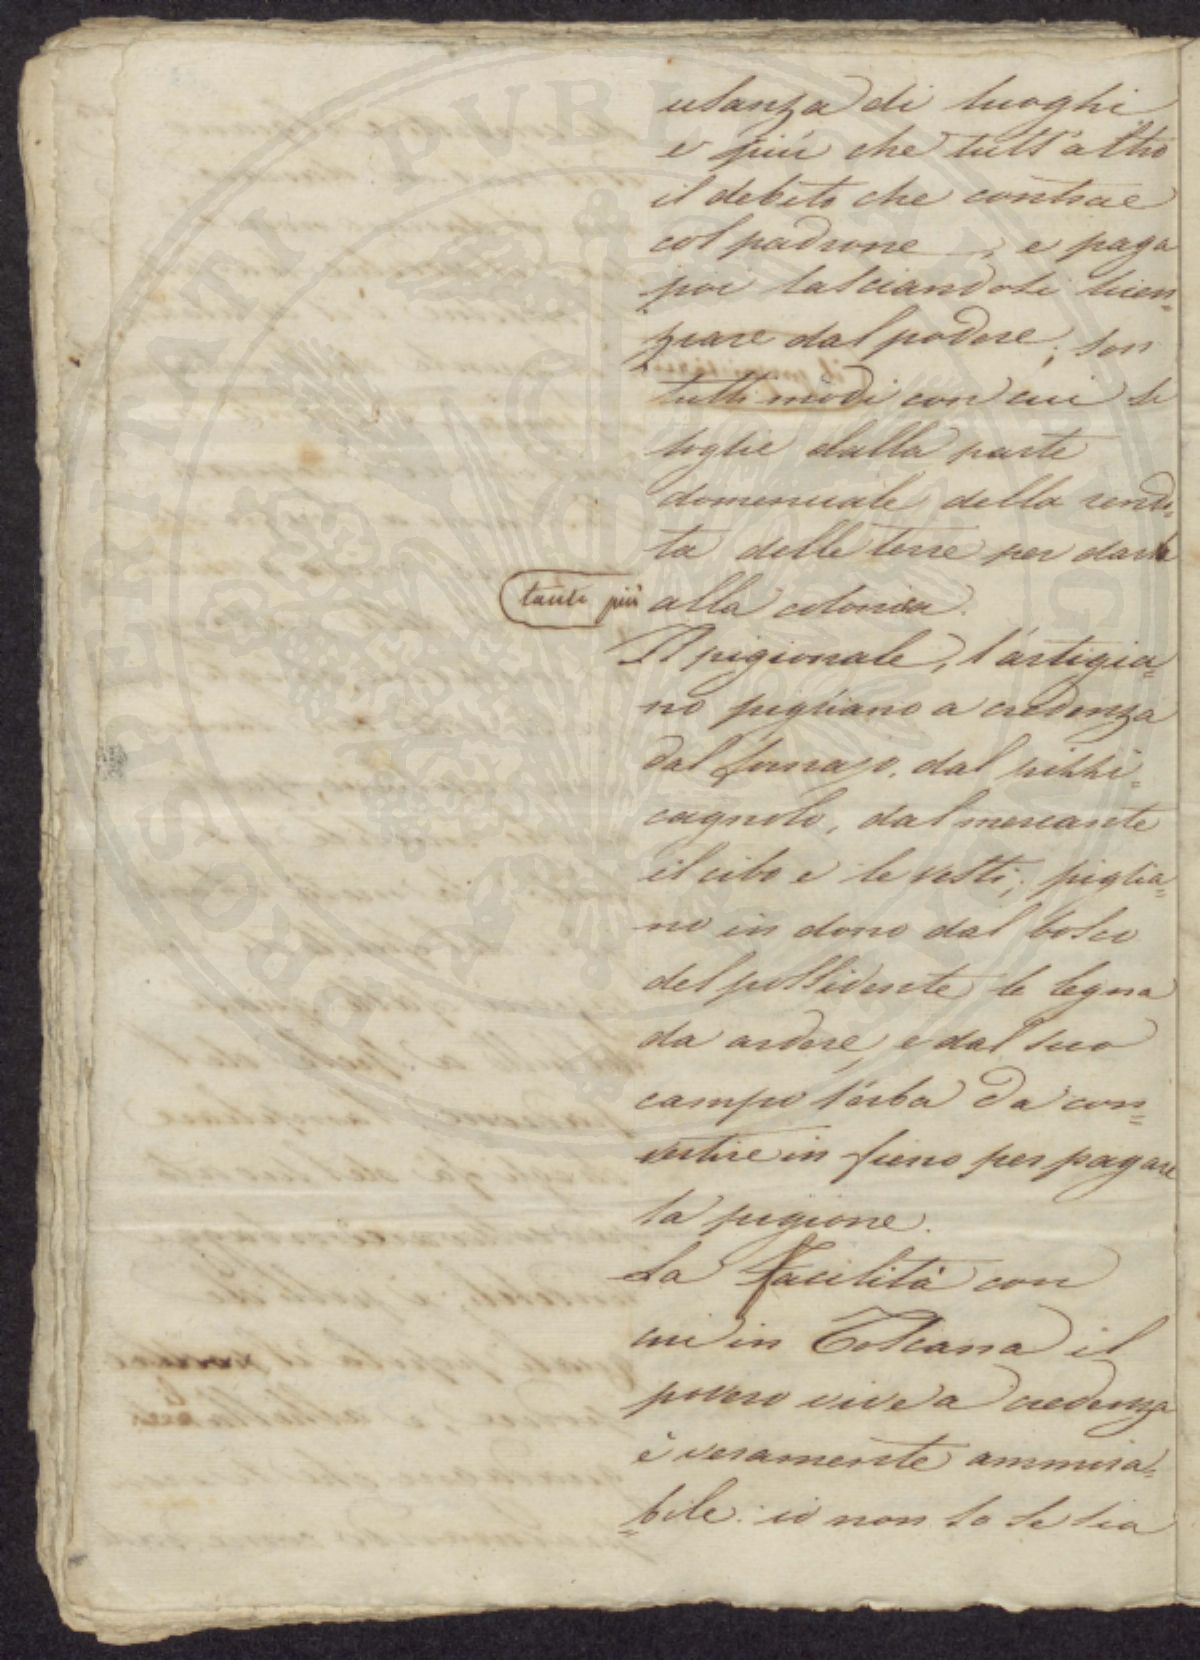 usanza di luoghi
e più che tutt'altro
il debito che contrae
col padrone, e paga
poi lasciandosi licen=
ziare dal podere; son
tutti modi con cui si
toglie dalla parte
domenicale della rendi=
ta delle terre per darle
tanti più
alla colonica.
Il pigionale, l'artigia=
no pigliano a credenza
dal fornajo, dal pizzi=
cagnolo, dal mercante
il cibo e le vesti; piglia=
no in dono dal bosco
del possidente le legna
da ardere, e dal suo
campo l'erba da con=
vertire in fieno per pagare
la pigione.
La facilità con
cui in Toscana il
povero vive a credenza
è veramente ammira=
bile: io non so se sia
PROPRIETATI PVBLICAE